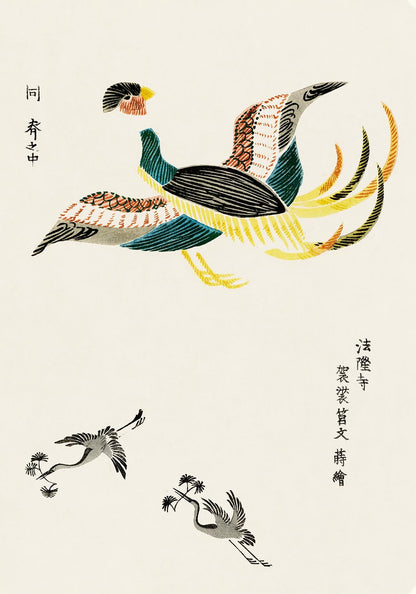 同 斉之中
法隆寺
袈裟筥文 蒔繪